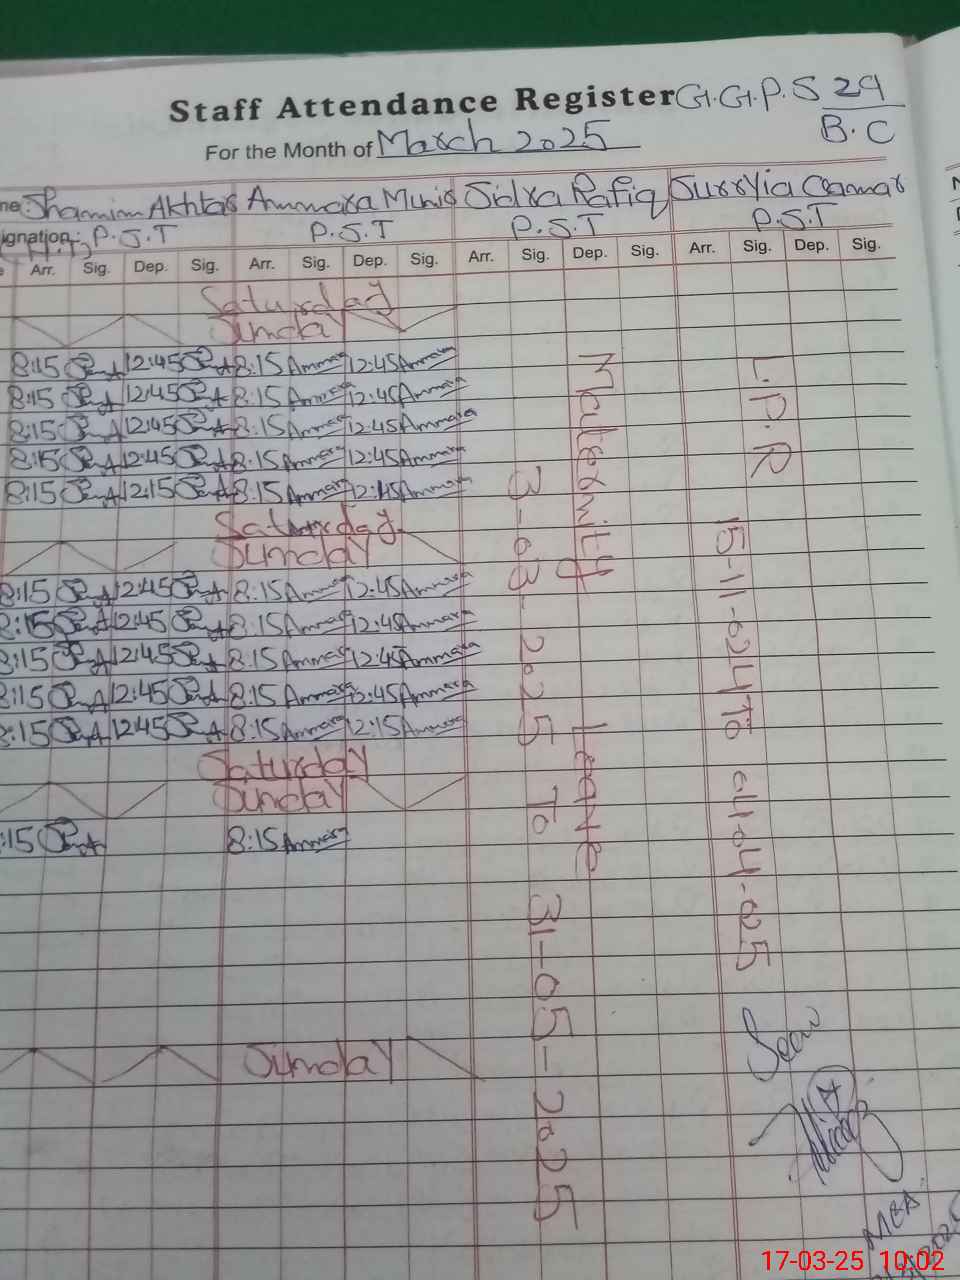 Staff Attendance Register G.G.P.S 29
B.C
For the Month of March 2025
me Shamim Akhtar Ammara Munir Sidra Rafiq Surryia Qamar
ignation: P.S.T P.S.T P.S.T P.S.T
Arr. Sig. Dep. Sig. Arr. Sig. Dep. Sig. Arr. Sig. Dep. Sig. Arr. Sig. Dep. Sig.
Saturday
Sunday
8:15 12:45 8:15 Ammara 12:45 Ammara
8:15 12:45 8:15 Ammara 12:45 Ammara
8:15 12:45 8:15 Ammara 12:45 Ammara
8:15 12:45 8:15 Ammara 12:45 Ammara
8:15 12:15 8:15 Ammara 12:15 Ammara
Saturday
Sunday
8:15 12:45 8:15 Ammara 12:45 Ammara
8:15 12:45 8:15 Ammara 12:45 Ammara
8:15 12:45 8:15 Ammara 12:45 Ammara
8:15 12:45 8:15 Ammara 12:45 Ammara
8:15 12:45 8:15 Ammara 12:15 Ammara
Saturday
Sunday
:15 8:15 Ammara
Sunday
Maternity Leave
3-03-2025 To 31-05-2025
L.P.R
15-11-024 To 01-04-025
Seen
MEA
17-03-25 10:02